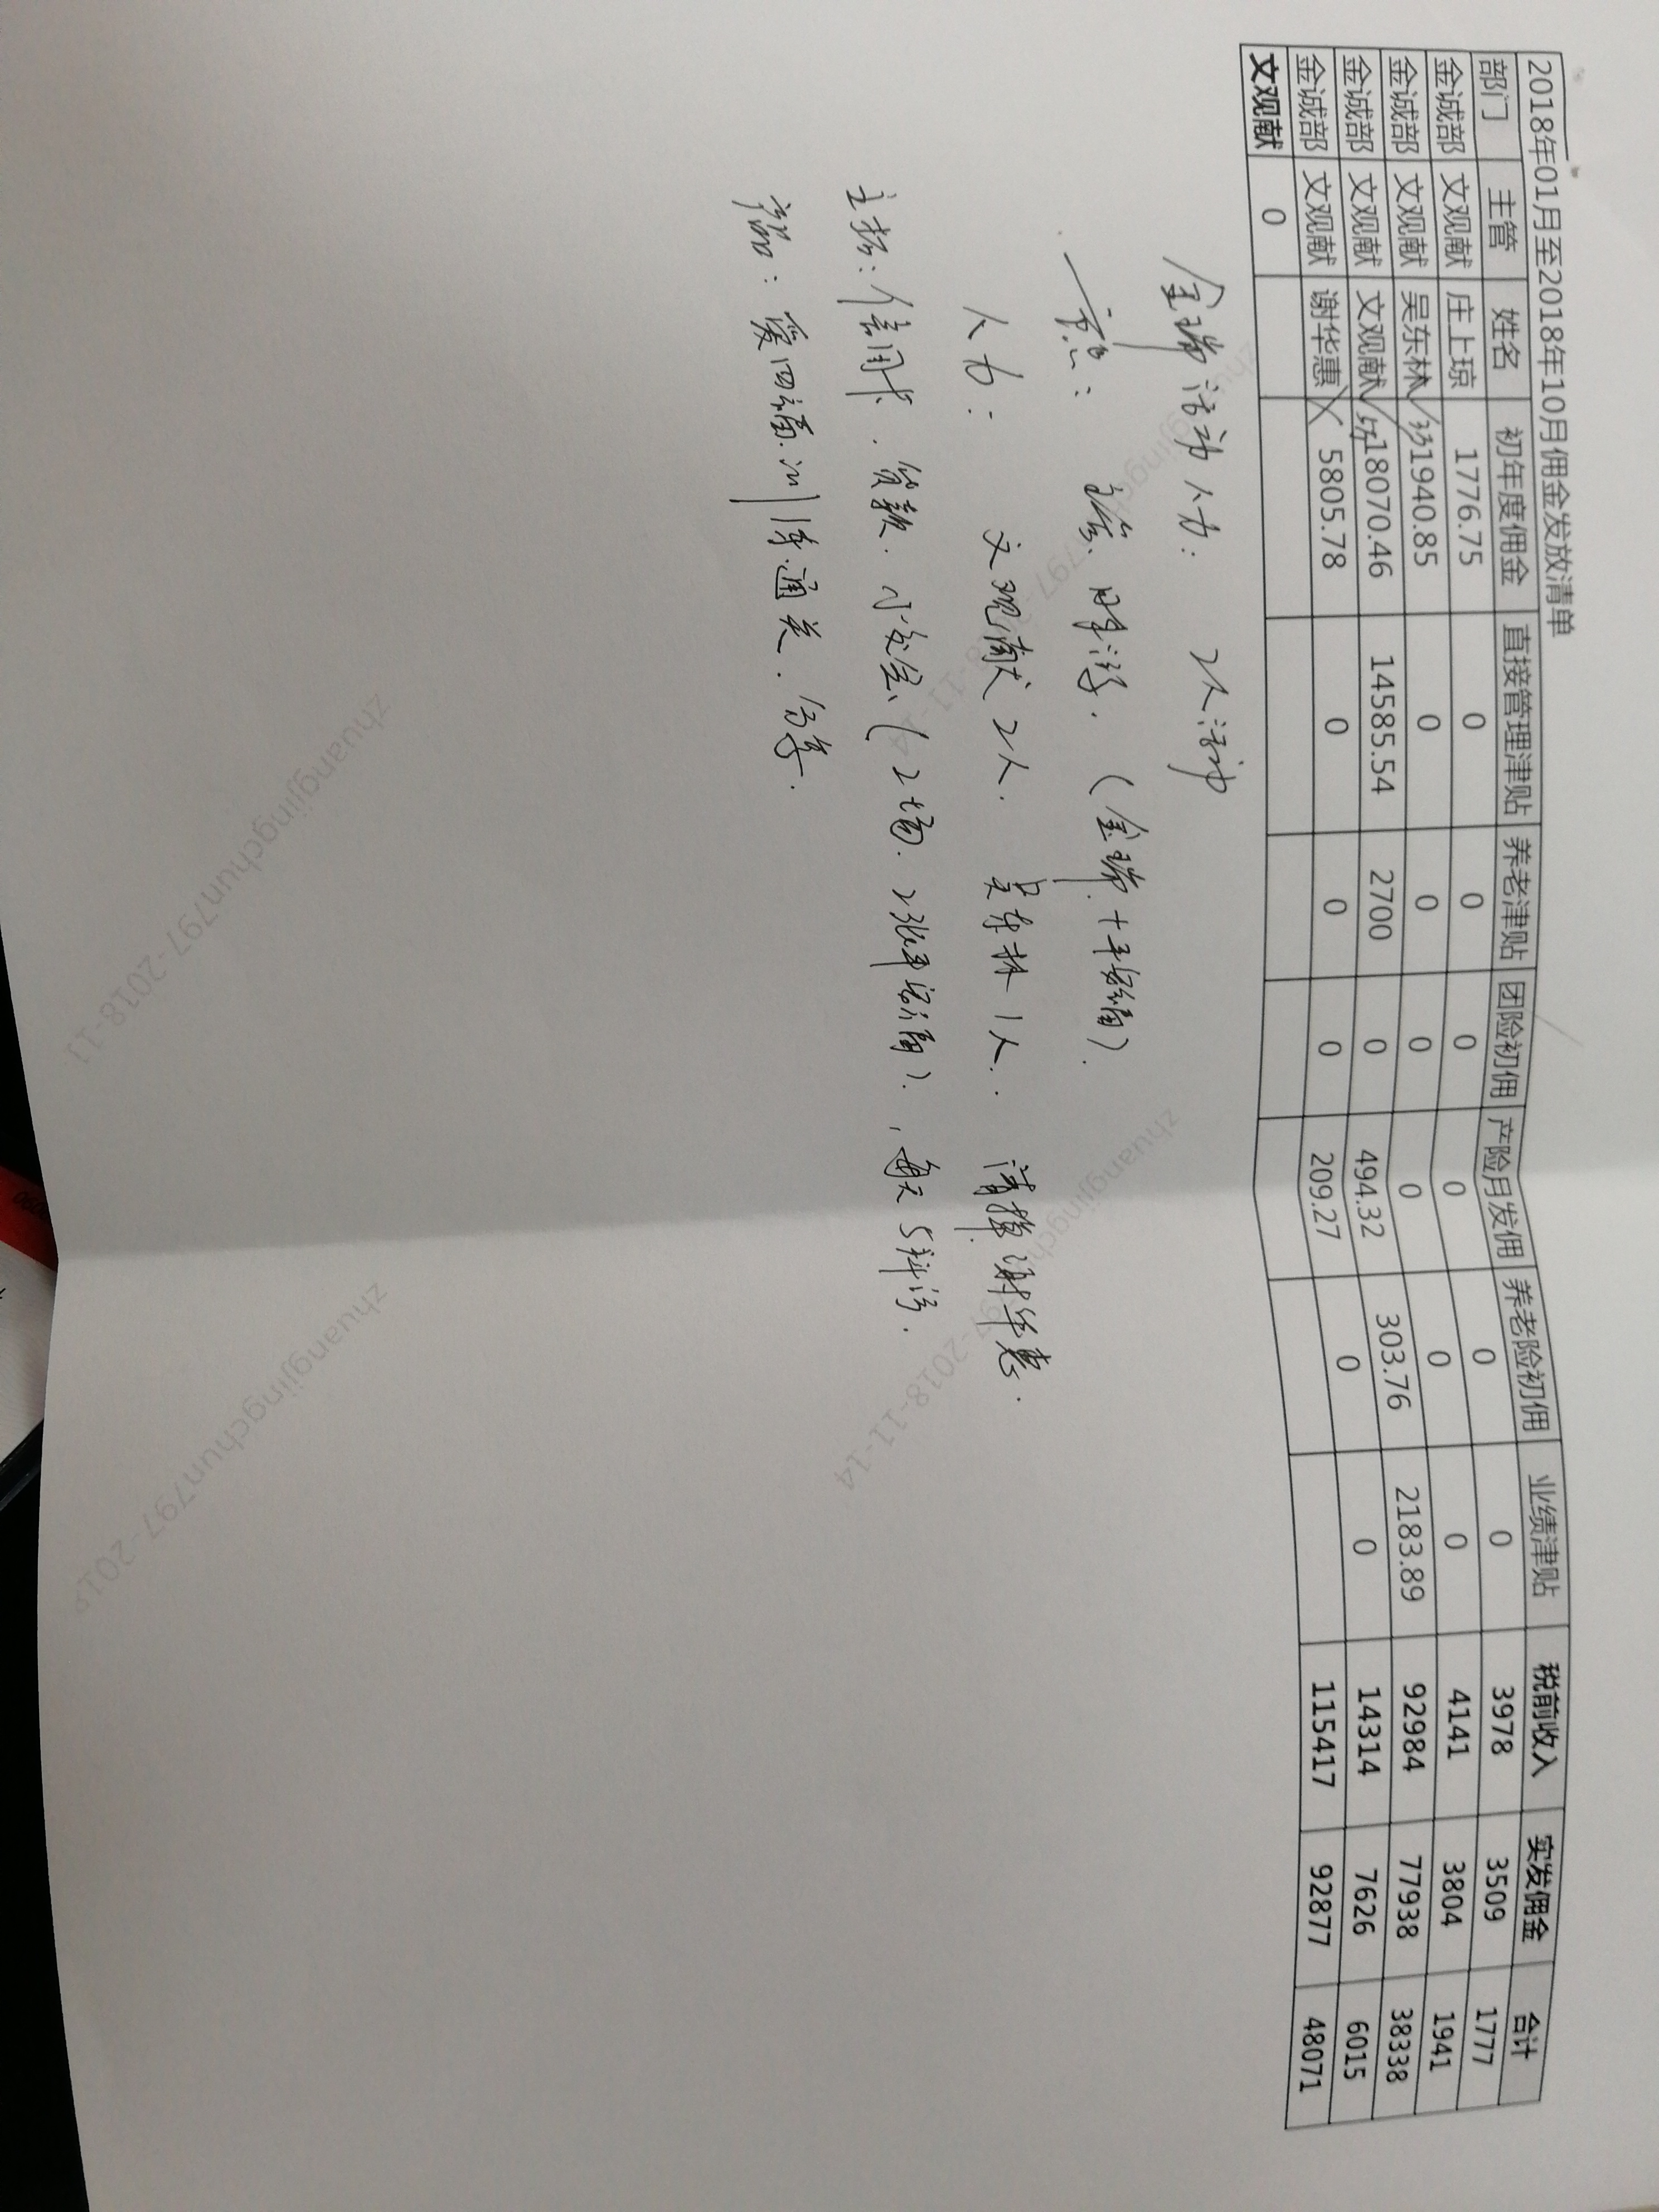 2018年01月至2018年10月佣金发放清单
部门 主管 姓名 初年度佣金 直接管理津贴 养老津贴 团险初佣 产险月发佣 养老险初佣 业绩津贴 税前收入 实发佣金 合计
金诚部 文观献 庄上琼 1776.75 0 0 0 0 0 0 3978 3509 1777
金诚部 文观献 吴东林 1940.85 0 0 0 0 0 0 4141 3804 1941
金诚部 文观献 文观献 18070.46 14585.54 2700 0 494.32 303.76 2183.89 92984 77938 38338
金诚部 文观献 谢华惠 5805.78 0 0 0 209.27 0 0 14314 7626 6015
文观献 0 115417 92877 48071
金瑞活动人力: 2人活动
: 主管、 (金瑞+平安福).
人力: 文观献2人. 吴东林1人. 清掉谢华惠.
主拓:信用卡、贷款. 小交会(2场. 2张平安福), 每天5拜访.
: 爱四福. 训传.通关. 分享.
zhuangjingchun797-2018-11-14
zhuangjingchun797-2018-11
zhuangjingchun797-2018